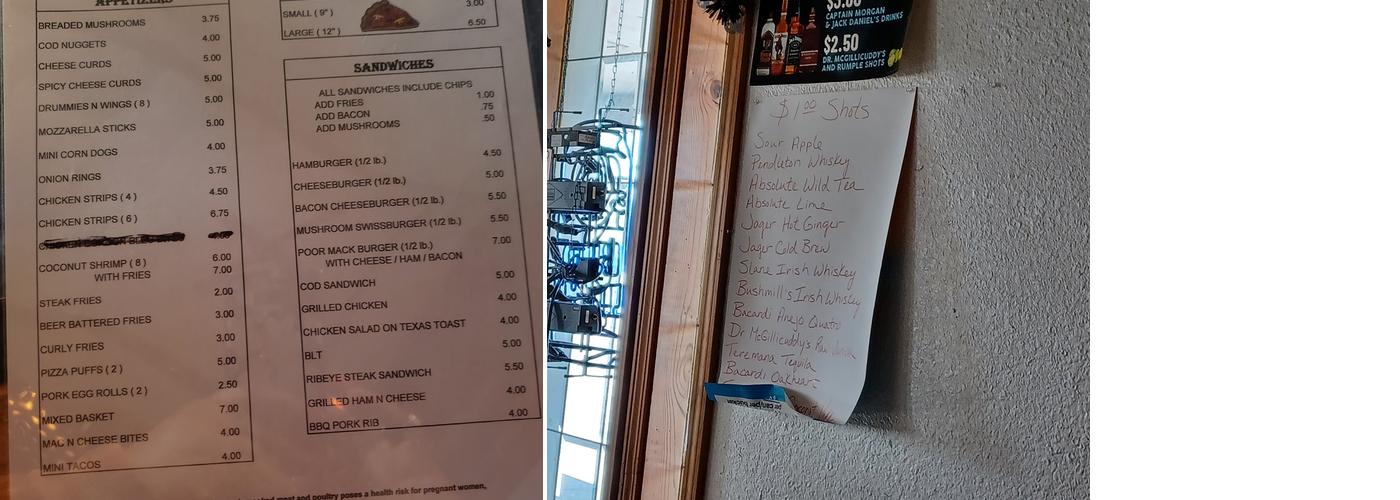 APPETIZERS
BREADED MUSHROOMS 3.75
COD NUGGETS 4.00
CHEESE CURDS 5.00
SPICY CHEESE CURDS 5.00
DRUMMIES N WINGS ( 8 ) 5.00
MOZZARELLA STICKS 5.00
MINI CORN DOGS 4.00
ONION RINGS 3.75
CHICKEN STRIPS ( 4 ) 4.50
CHICKEN STRIPS ( 6 ) 6.75
COCONUT SHRIMP ( 8 ) 6.00
WITH FRIES 7.00
STEAK FRIES 2.00
BEER BATTERED FRIES 3.00
CURLY FRIES 3.00
PIZZA PUFFS ( 2 ) 5.00
PORK EGG ROLLS ( 2 ) 2.50
MIXED BASKET 7.00
MAC N CHEESE BITES 4.00
MINI TACOS 4.00
SMALL ( 9" ) 3.00
LARGE ( 12" ) 6.50
SANDWICHES
ALL SANDWICHES INCLUDE CHIPS
ADD FRIES 1.00
ADD BACON .75
ADD MUSHROOMS .50
HAMBURGER (1/2 lb.) 4.50
CHEESEBURGER (1/2 lb.) 5.00
BACON CHEESEBURGER (1/2 lb.) 5.50
MUSHROOM SWISSBURGER (1/2 lb.) 5.50
POOR MACK BURGER (1/2 lb.) 7.00
WITH CHEESE / HAM / BACON
COD SANDWICH 5.00
GRILLED CHICKEN 4.00
CHICKEN SALAD ON TEXAS TOAST 4.00
BLT 5.00
RIBEYE STEAK SANDWICH 5.50
GRILLED HAM N CHEESE 4.00
BBQ PORK RIB 4.00
meat and poultry poses a health risk for pregnant women,
CAPTAIN MORGAN
& JACK DANIEL'S DRINKS
$2.50
DR. MCGILLICUDDY'S
AND RUMPLE SHOTS
$1.00 Shots
Sour Apple
Pendleton Whiskey
Absolute Wild Tea
Absolute Lime
Jager Hot Ginger
Jager Cold Brew
Slane Irish Whiskey
Bushmill's Irish Whiskey
Bacardi Anejo Quatro
Dr McGillicuddy's Raw Vanilla
Teremana Tequila
Bacardi Oakheart